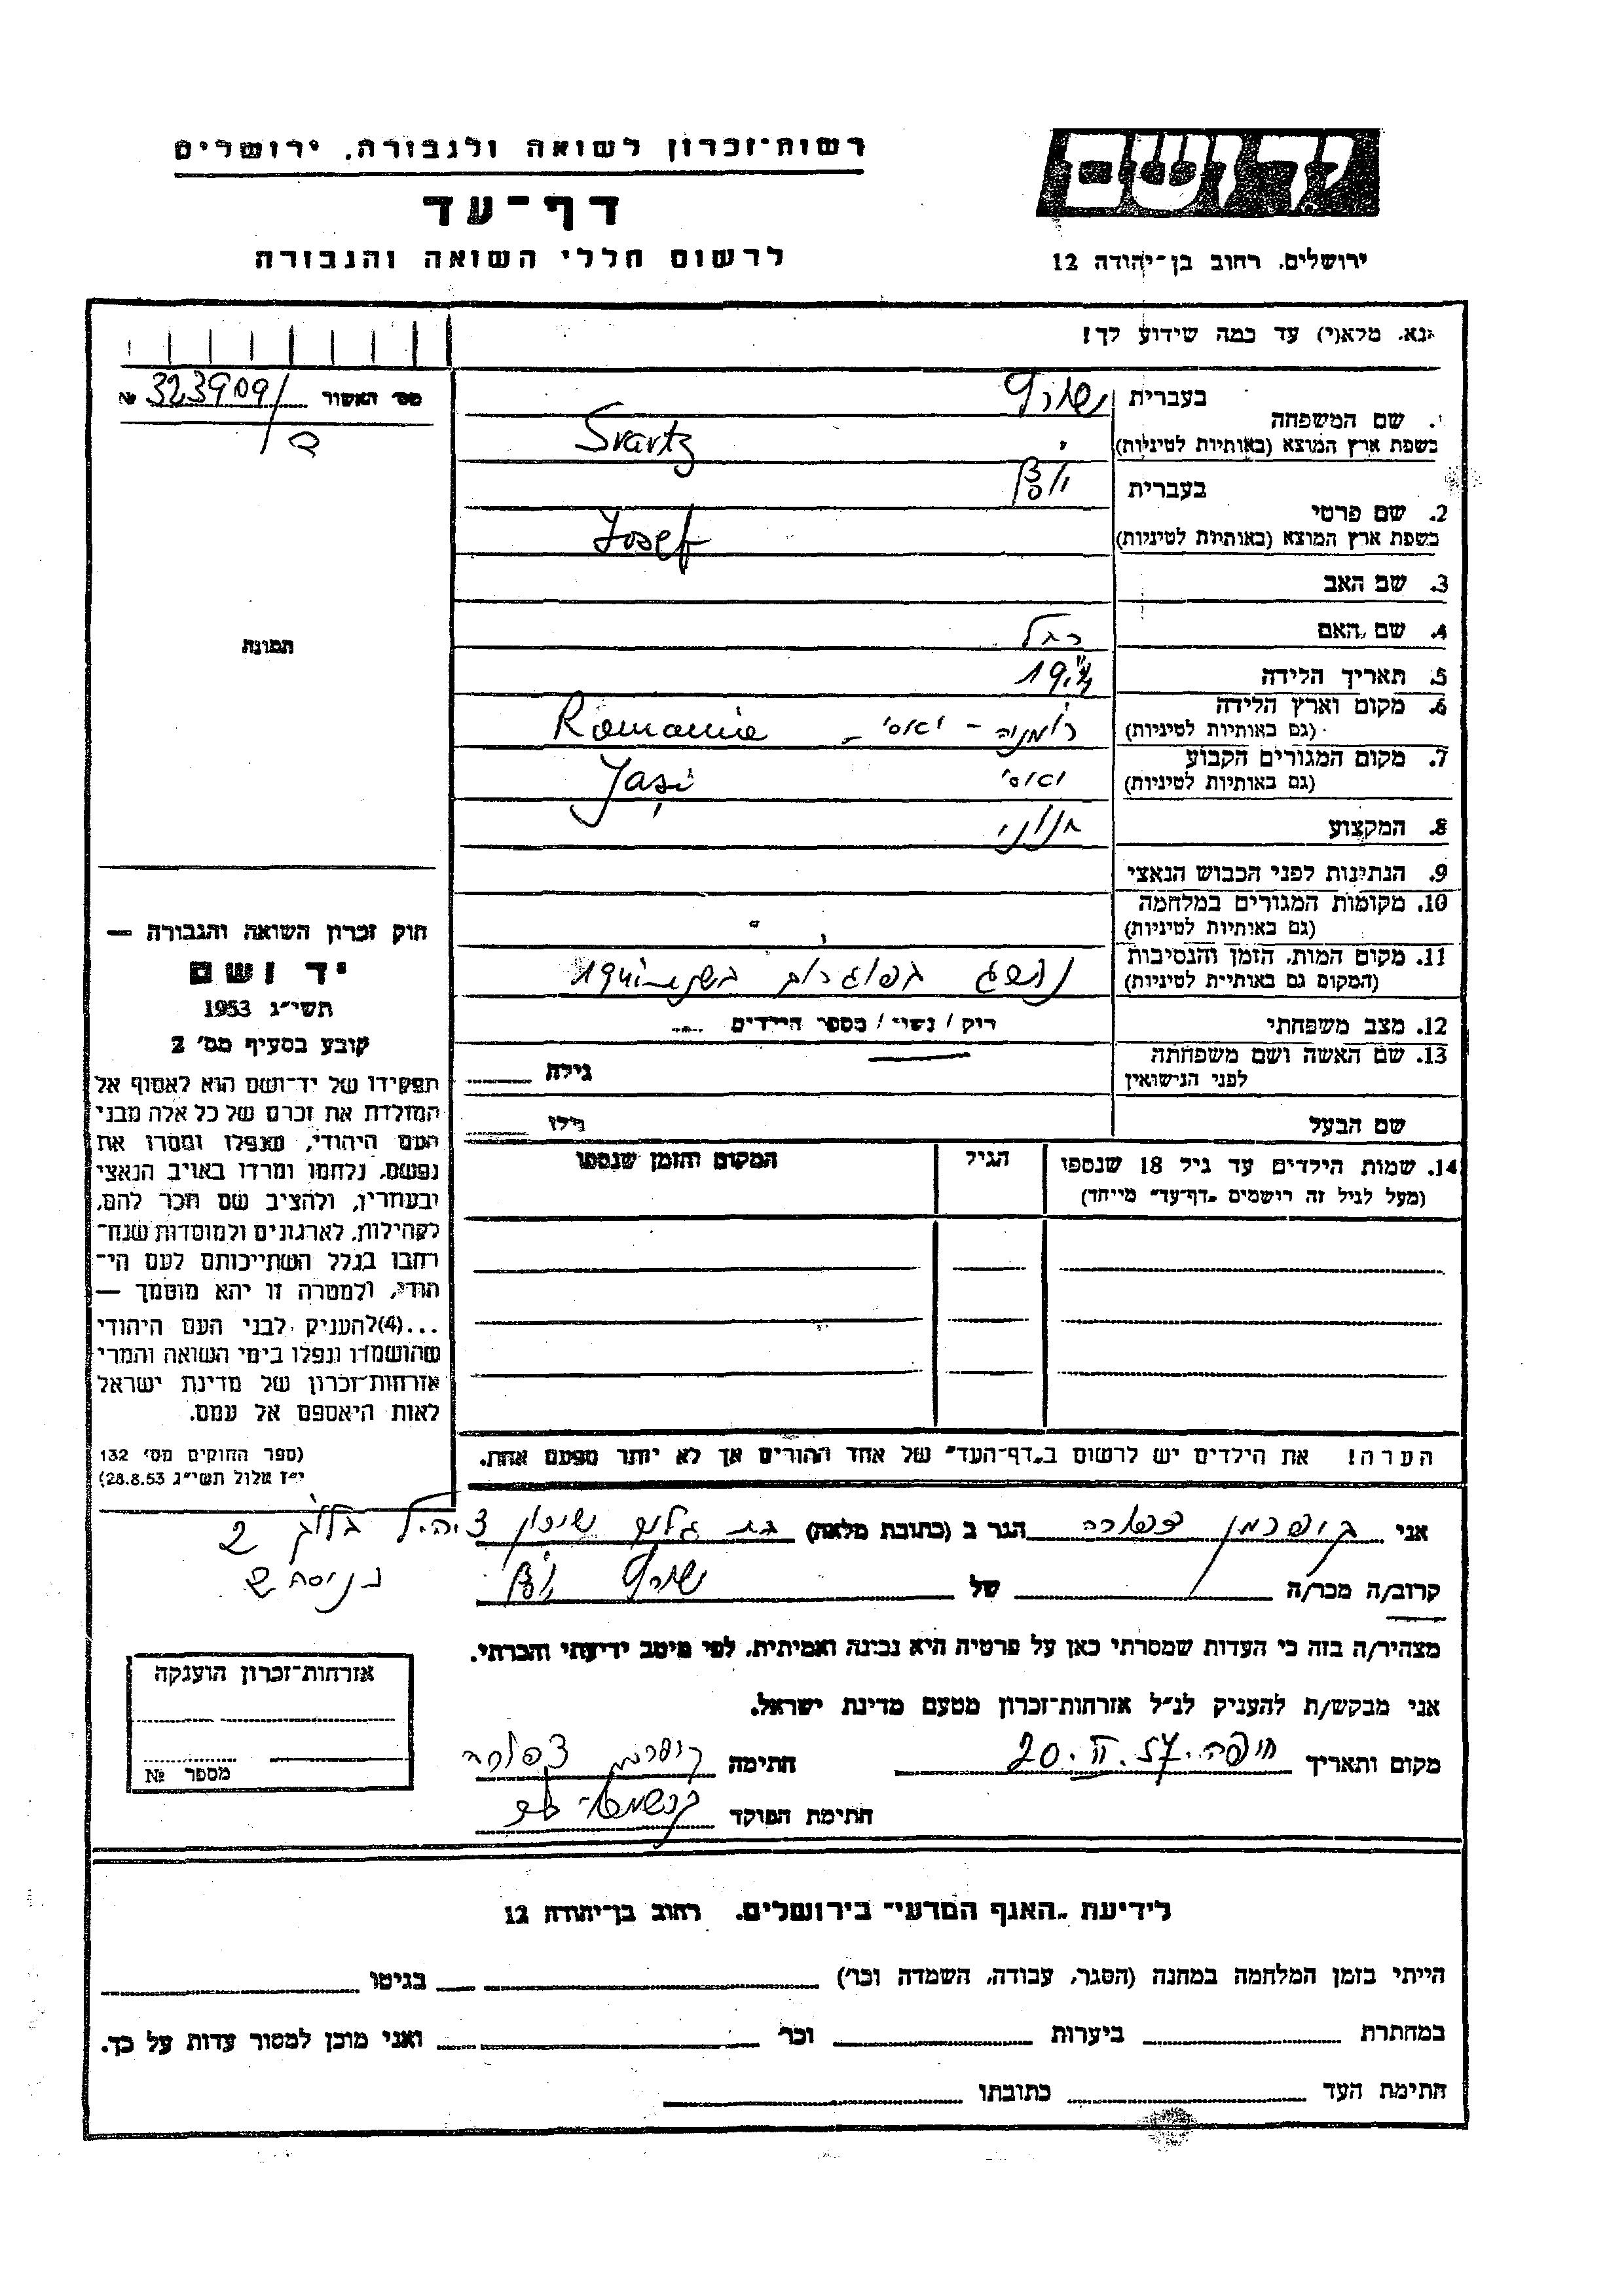 רשות־זכרון לשואה ולגבורה, ירושלים
דף־עד
לרשום חללי השואה והגבורה
יד ושם
ירושלים, רחוב בן־יהודה 12
נא, מלא(י) עד כמה שידוע לך!
מס׳ האשור № 323909/
שם המשפחה
בעברית שורץ
בשפת ארץ המוצא (באותיות לטיניות) Svartz
2. שם פרטי
בעברית
בשפת ארץ המוצא (באותיות לטיניות) Josef
3. שם האב
4. שם האם רחל
5. תאריך הלידה
6. מקום וארץ הלידה (גם באותיות לטיניות) רומניה - יאסי - Romania
7. מקום המגורים הקבוע (גם באותיות לטיניות) יאסי Jaşi
8. המקצוע חנוני
9. הנתינות לפני הכבוש הנאצי
10. מקומות המגורים במלחמה (גם באותיות לטיניות)
11. מקום המות, הזמן והנסיבות (המקום גם באותיות לטיניות) נהרג בפוגרום 1941
12. מצב משפחתי רוק / נשוי / מספר הילדים
13. שם האשה ושם משפחתה לפני הנישואין גילה
שם הבעל גילו
14. שמות הילדים עד גיל 18 שנספו (מעל לגיל זה רושמים "דף־עד" מיוחד) הגיל המקום והזמן שנספו
הערה! את הילדים יש לרשום ב"דף־העד" של אחד ההורים אך לא יותר מפעם אחת.
תמונה
חוק זכרון השואה והגבורה —
יד ושם
תשי״ג 1953
קובע בסעיף מס׳ 2
תפקידו של יד־ושם הוא לאסוף אל
המולדת את זכרם של כל אלה מבני
העם היהודי, שנפלו ומסרו את
נפשם, נלחמו ומרדו באויב הנאצי
ובעוזריו, ולהציב שם וזכר להם,
לקהילות, לארגונים ולמוסדות שנח־
רבו בגלל השתייכותם לעם הי־
הודי, ולמטרה זו יהא מוסמך —
...(4) להעניק לבני העם היהודי
שהושמדו ונפלו בימי השואה והמרי
אזרחות־זכרון של מדינת ישראל
לאות היאספם אל עמם.
(ספר החוקים מס׳ 132
י״ז אלול תשי״ג 28.8.53)
אני הגר ב (כתובת מלאה) בת גלים שיכון צ.ה.ל בלוק 2
כניסה ש
קרוב/ה מכר/ה של שורץ
מצהיר/ה בזה כי העדות שמסרתי כאן על פרטיה היא נכונה ואמיתית, לפי מיטב ידיעתי והכרתי.
אני מבקש/ת להעניק לנ״ל אזרחות־זכרון מטעם מדינת ישראל.
מקום ותאריך חיפה. 20.II.57 חתימה
חתימת הפוקד
אזרחות־זכרון הוענקה
מספר №
לידיעת "האגף המדעי" בירושלים, רחוב בן־יהודה 12
הייתי בזמן המלחמה במחנה (הסגר, עבודה, השמדה וכו׳) בגיטו
במחתרת ביערות וכו׳ ואני מוכן למסור עדות על כך.
חתימת העד כתובתו